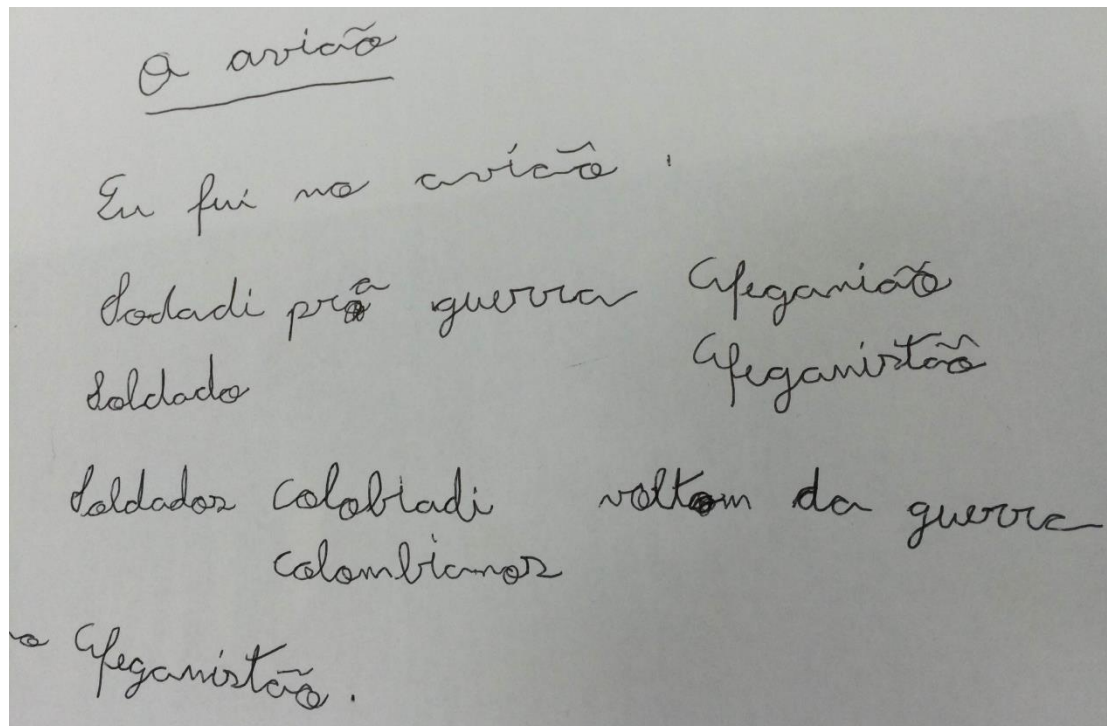 O avião
Eu fui no avião.
Sodadi pra guerra Afeganião
Soldado Afeganistão
Soldados colobiadi voltam da guerra
colombianos
no Afeganistão.